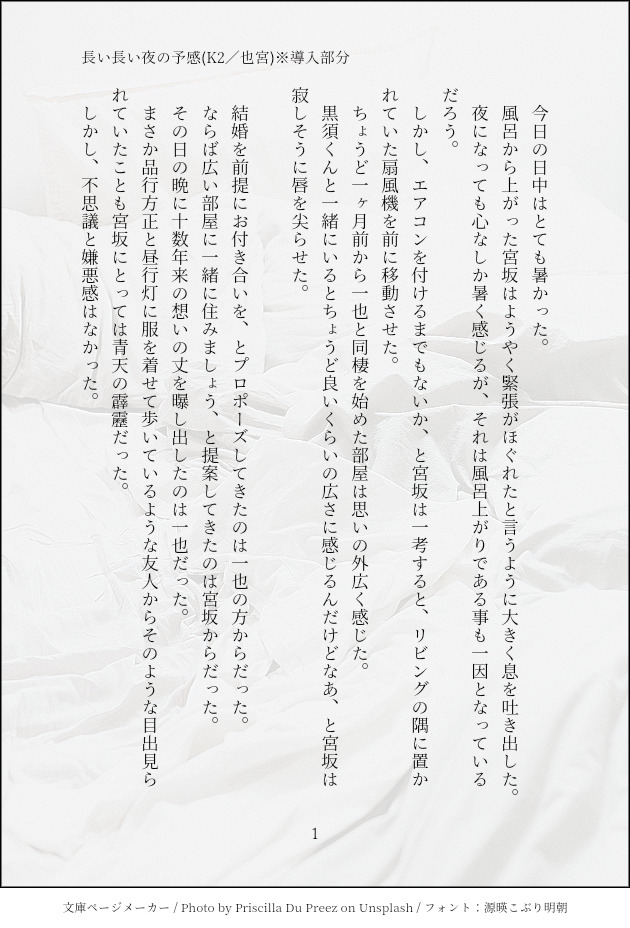 長い長い夜の予感(K2／也宮)※導入部分
今日の日中はとても暑かった。
風呂から上がった宮坂はようやく緊張がほぐれたと言うように大きく息を吐き出した。
夜になっても心なしか暑く感じるが、それは風呂上がりである事も一因となっている
だろう。
しかし、エアコンを付けるまでもないか、と宮坂は一考すると、リビングの隅に置か
れていた扇風機を前に移動させた。
ちょうど一ヶ月前から一也と同棲を始めた部屋は思いの外広く感じた。
黒須くんと一緒にいるとちょうど良いくらいの広さに感じるんだけどなあ、と宮坂は
寂しそうに唇を尖らせた。
結婚を前提にお付き合いを、とプロポーズしてきたのは一也の方からだった。
ならば広い部屋に一緒に住みましょう、と提案してきたのは宮坂からだった。
その日の晩に十数年来の想いの丈を曝し出したのは一也だった。
まさか品行方正と昼行灯に服を着せて歩いているような友人からそのような目出見ら
れていたことも宮坂にとっては青天の霹靂だった。
しかし、不思議と嫌悪感はなかった。
1
文庫ページメーカー / Photo by Priscilla Du Preez on Unsplash / フォント：源暎こぶり明朝